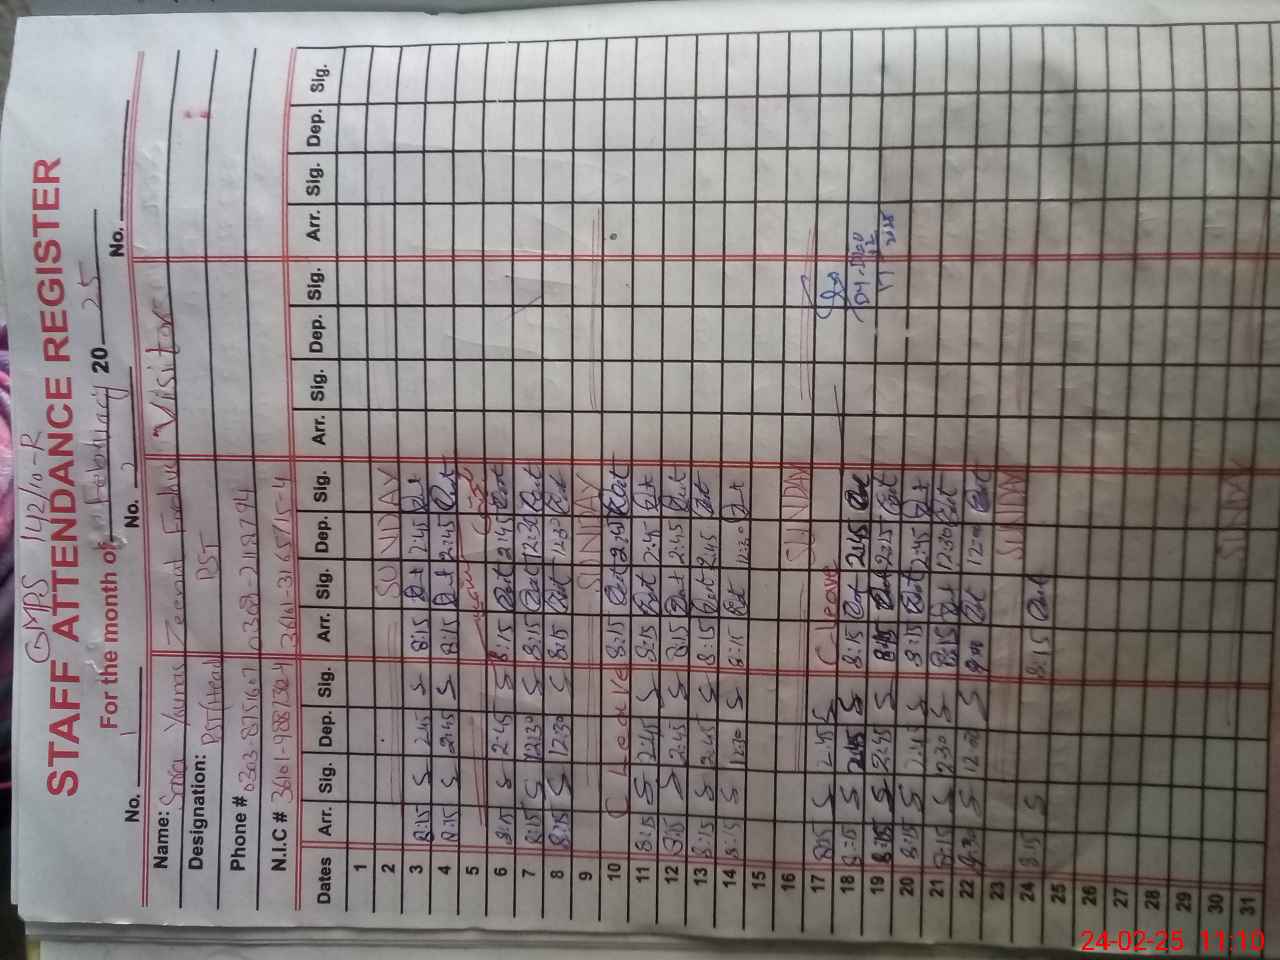 GMPS 142/10-R
STAFF ATTENDANCE REGISTER
For the month of February 20 25
No. 1 No. 2 No.
Name: Younas Zeenat Visitor
Designation: PST(Head) PST
Phone # 0303-8751607
N.I.C # 36101-9887302-4 36101-3165715-4
Dates Arr. Sig. Dep. Sig. Arr. Sig. Dep. Sig. Arr. Sig. Dep. Sig. Arr. Sig. Dep. Sig.
1
2 SUNDAY
3 8:15 S 2:45 S 8:15 2:45
4 8:15 S 2:45 S 8:15 2:45
5
6 8:15 S 2:45 S 8:15 2:45
7 8:15 S 12:30 S 8:15 12:30
8 8:15 S 12:30 S 8:15 12:30
9 SUNDAY
10 C Leave 8:15 2:45
11 8:15 S 2:45 S 8:15 2:45
12 8:15 S 2:45 S 8:15 2:45
13 8:15 S 2:45 S 8:15 2:45
14 8:15 S 12:30 S 8:15 12:30
15
16 SUNDAY
17 8:15 S 2:45 S C-leave
18 8:15 S 2:45 S 8:15 2:45
19 8:15 S 2:45 S 8:15 2:25
20 8:15 S 2:45 S 8:15 2:45
21 8:15 S 2:30 S 8:15 12:30
22 S 12:00 S 12:00
23 SUNDAY
24 8:15 S 8:15
25
26
27
28
29
30 SUNDAY
31
24-02-25 11:10